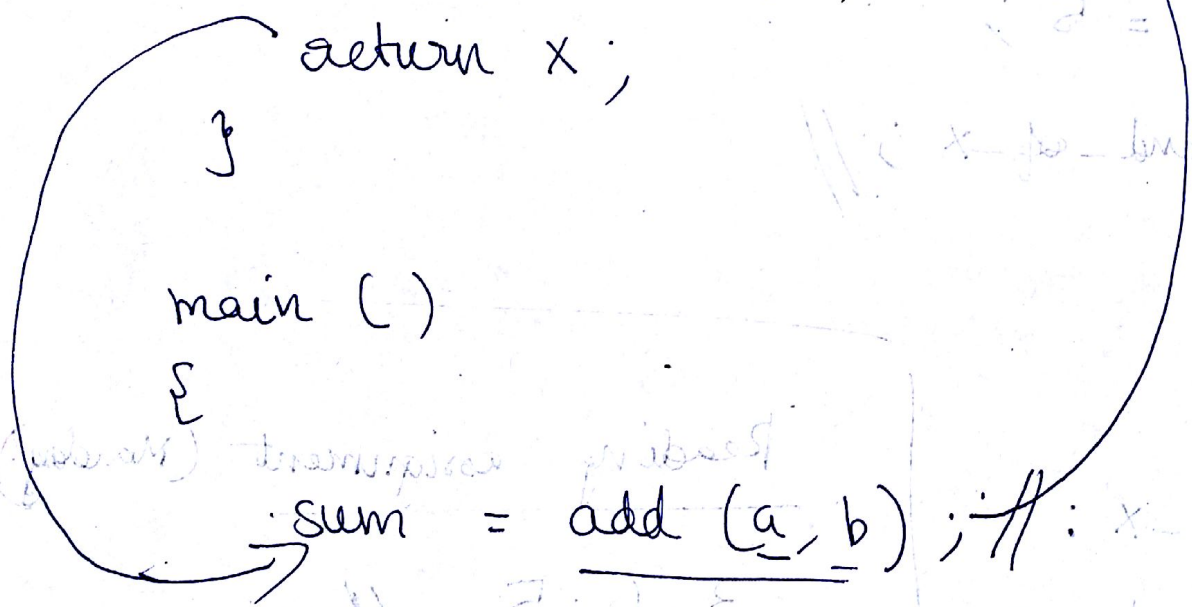 return x ;
}
main ( )
{
sum = add (a, b) ; // :